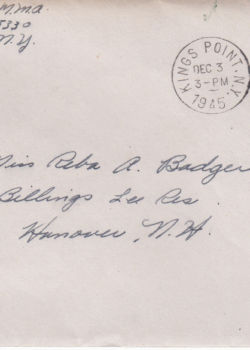 M.M.A.
N.Y.
KINGS POINT. N.Y.
DEC 3
3-PM
1945
Miss Reba A. Badger
Billings Lee Res
Hanover, N.H.